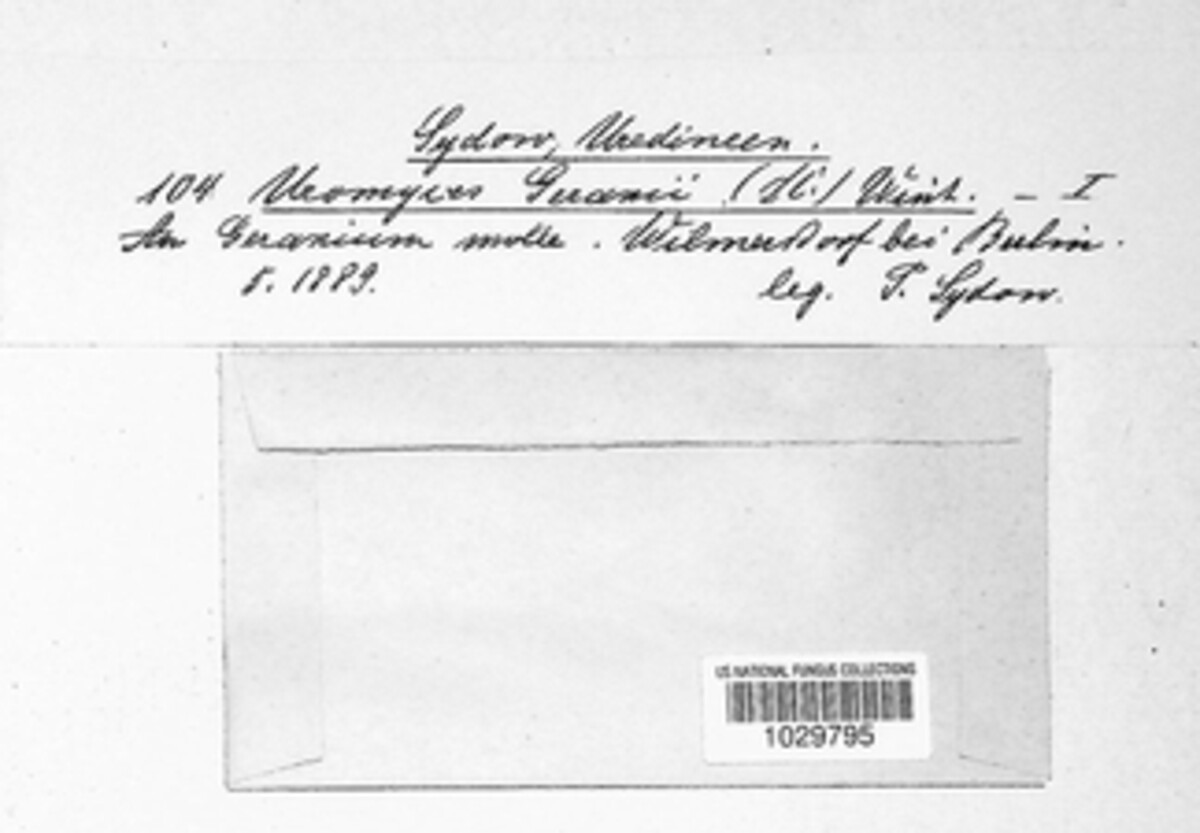 Sydow, Uredineen.
104 Uromyces Geranii (DC.) Wint. – I
An Geranium molle. Wilmersdorf bei Berlin.
5. 1889. leg. P. Sydow.
US NATIONAL FUNGUS COLLECTIONS
1029795